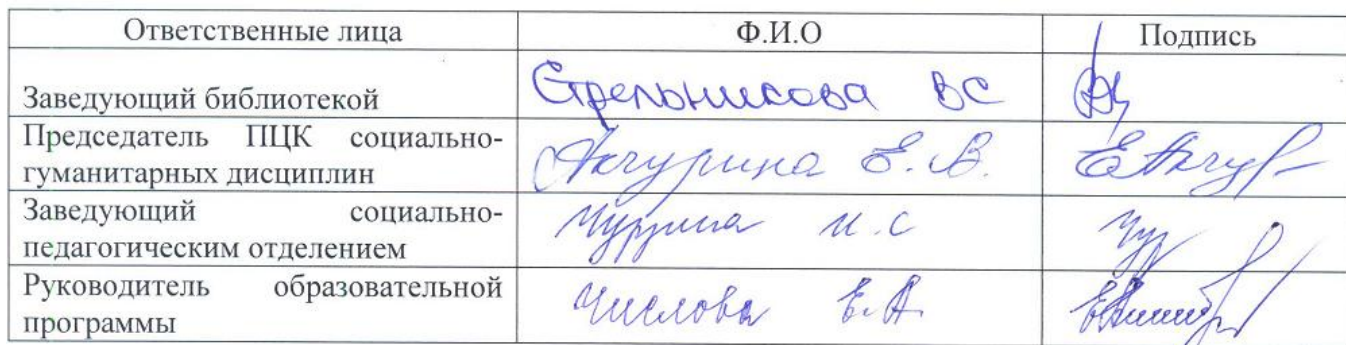 Ответственные лица Ф.И.О Подпись
Заведующий библиотекой Стрельникова ВС
Председатель ПЦК социально-
гуманитарных дисциплин Акчурина Е.В.
Заведующий социально-
педагогическим отделением И.С
Руководитель образовательной
программы Числова Е.А.